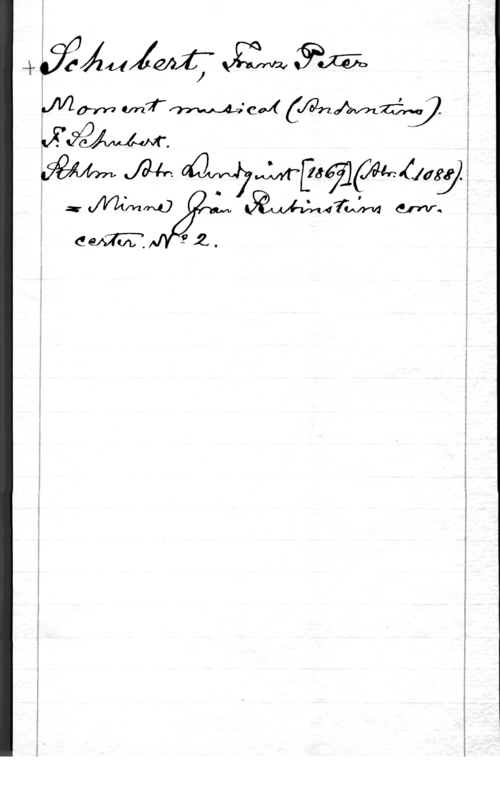 + Schubert, Franz Peter
Moment musical (Andantino).
F. Schubert.
Sthlm Abr. Lundquist [1869] (Abr. L. 1088).
= Minne från Rubinsteins con-
certer. Nº 2.